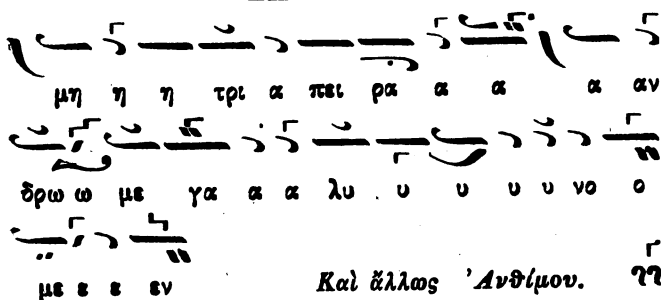 μη η η τρι α πει ρα α α α αν
δρω ω με γα α α λυ υ υ υ υ νο ο
με ε ε εν
Καὶ ἄλλως Ἀνθίμου.